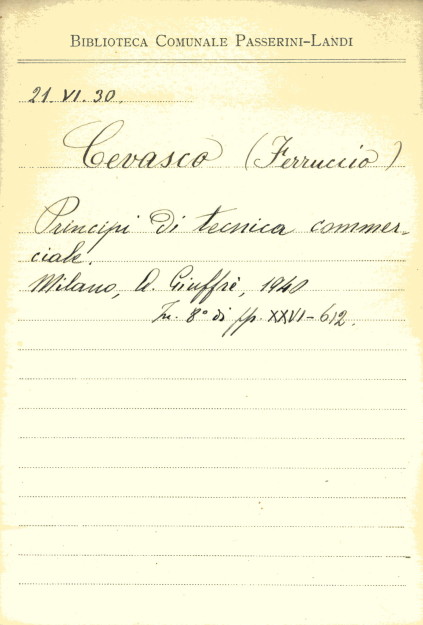 BIBLIOTECA COMUNALE PASSERINI-LANDI
21. VI. 30.
Cevasco (Ferruccio)
Principi di tecnica commer-
ciale.
Milano, A. Giuffrè, 1940
In 8° di pp. XXVI-612.